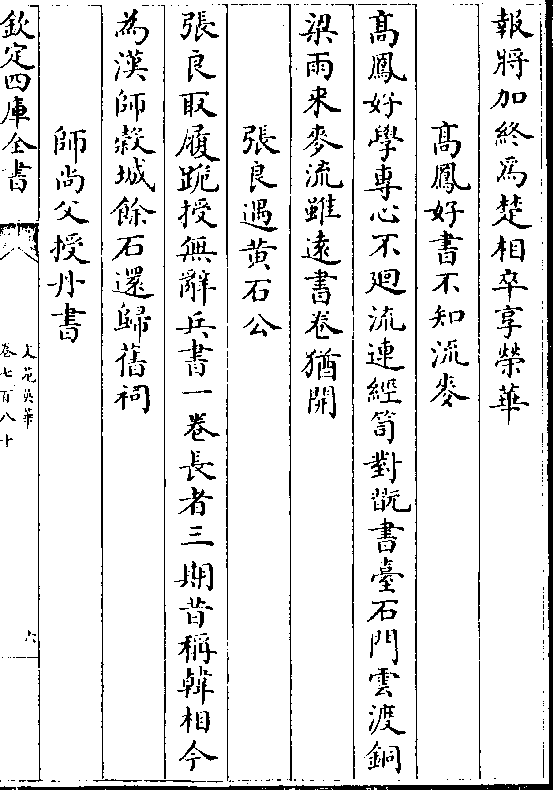 報將加終爲楚相卒享榮華
高鳳好書不知流麥
高鳳好學專心不廻流連經笥對翫書臺石門雲渡銅
梁雨來麥流雖遠書卷猶開
張良遇黄石公
張良取履跪授無辭兵書一卷長者三期昔稱韓相今
為漢師穀城餘石還歸舊祠
師尚父授丹書
欽定四庫全書
文苑英華
卷七百八十
六